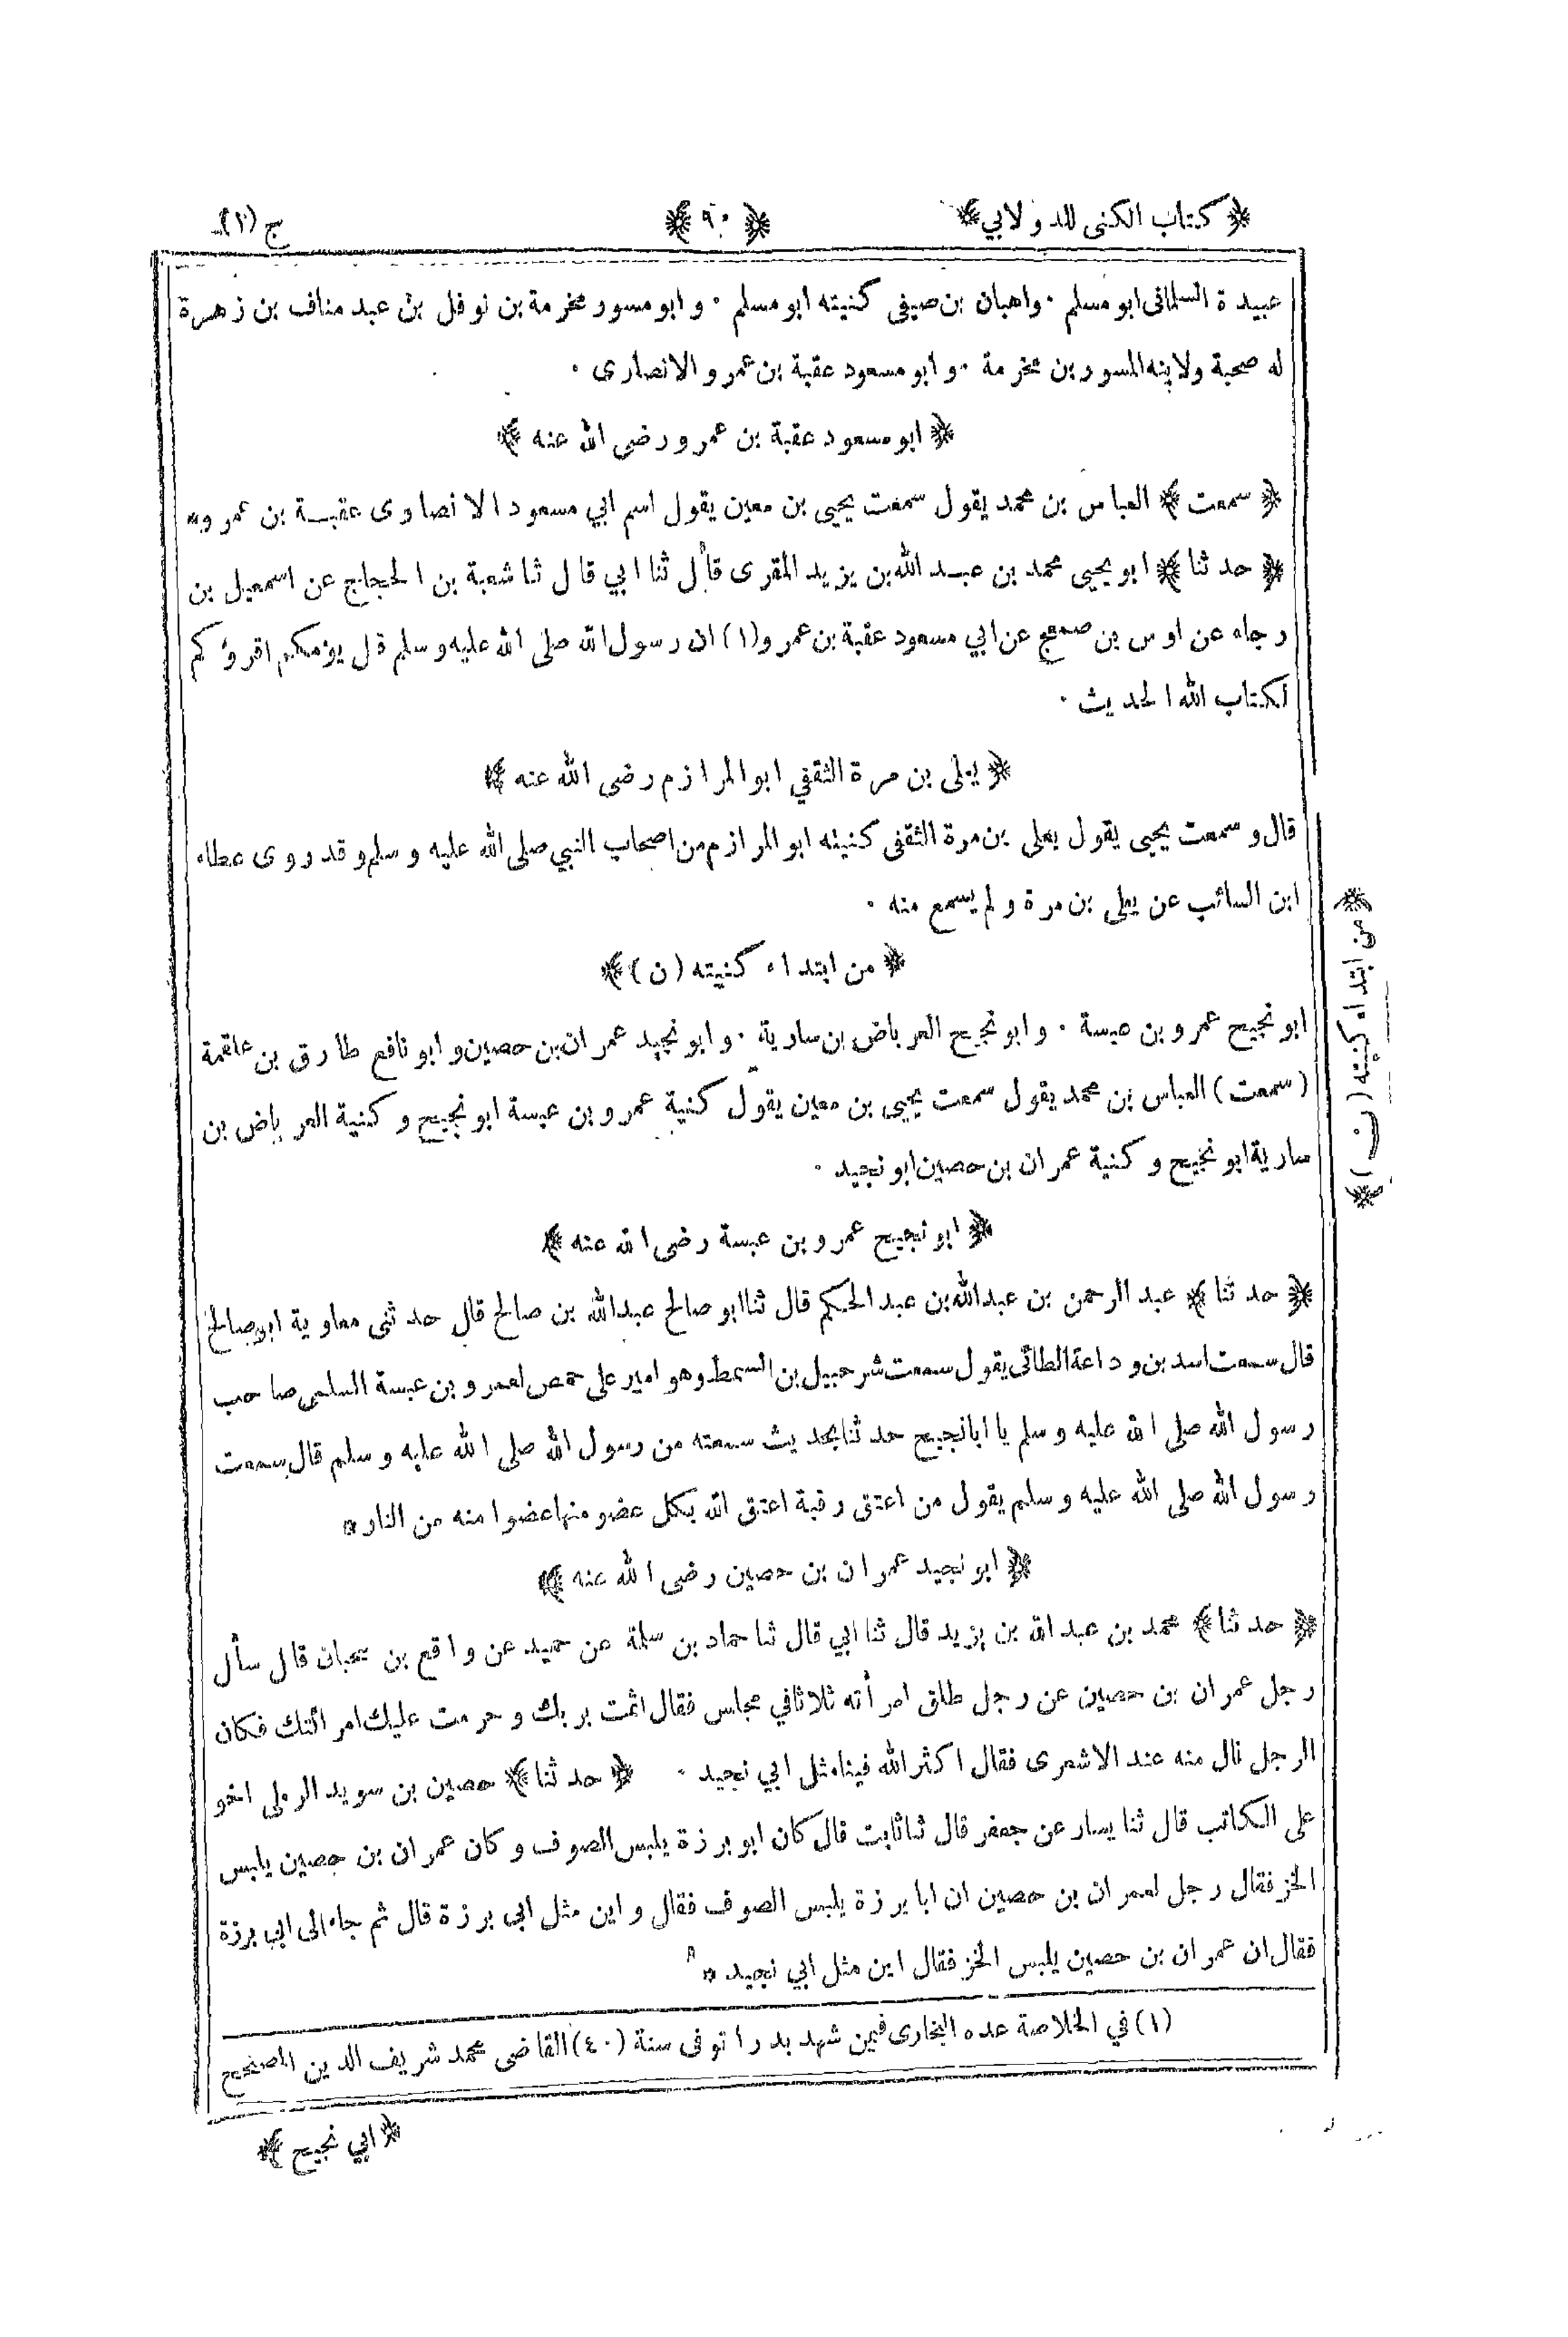 ﴿كتاب الكنى للدولابي﴾ ﴿٩٠﴾ ج (١)
عبيدة السلمانى ابو مسلم ٠ واهبان بن صيفى كنيته ابو مسلم ٠ و ابو مسور مخرمة بن نوفل بن عبد مناف بن زهرة
له صحبة ولابنه المسور بن مخرمة ٠ و ابو مسعود عقبة بن عمرو الانصارى ٠
﴿ ابو مسعود عقبة بن عمرو رضى الله عنه ﴾
﴿ سمعت ﴾ العباس بن محمد يقول سمعت يحيى بن معين يقول اسم ابي مسعود الانصارى عقبة بن عمرو *
﴿ حدثنا ﴾ ابو يحيى محمد بن عبد الله بن يزيد المقرى قال ثنا ابي قال ثنا شعبة بن الحجاج عن اسمعيل بن
رجاء عن اوس بن ضمعج عن ابي مسعود عقبة بن عمرو (١) ان رسول الله صلى الله عليه وسلم قال يؤمكم اقرؤكم
لكتاب الله الحديث ٠
﴿ يعلى بن مرة الثقفي ابو المرازم رضى الله عنه ﴾
قال و سمعت يحيى يقول يعلى بن مرة الثقفى كنيته ابو المرازم من اصحاب النبي صلى الله عليه و سلم و قد روى عطاء
ابن السائب عن يعلى بن مرة و لم يسمع منه ٠
﴿ من ابتداء كنيته (ن) ﴾
ابو نجيح عمرو بن عبسة ٠ و ابو نجيح العرباض بن سارية ٠ و ابو نجيد عمران بن حصين و ابو نافع طارق بن علقمة
(سمعت) العباس بن محمد يقول سمعت يحيى بن معين يقول كنية عمرو بن عبسة ابو نجيح و كنية العرباض بن
سارية ابو نجيح و كنية عمران بن حصين ابو نجيد ٠
﴿ ابو نجيح عمرو بن عبسة رضى الله عنه ﴾
﴿ حدثنا ﴾ عبد الرحمن بن عبدالله بن عبد الحكم قال ثنا ابو صالح عبدالله بن صالح قال حدثنى معاوية ابو صالح
قال سمعت اسد بن وداعة الطائى يقول سمعت شرحبيل بن السمط وهو امير على حمص لعمرو بن عبسة السلمى صاحب
رسول الله صلى الله عليه و سلم يا ابا نجيح حدثنا بحديث سمعته من رسول الله صلى الله عليه و سلم قال سمعت
رسول الله صلى الله عليه و سلم يقول من اعتق رقبة اعتق الله بكل عضو منها عضوا منه من النار *
﴿ ابو نجيد عمران بن حصين رضى الله عنه ﴾
﴿ حدثنا ﴾ محمد بن عبد الله بن يزيد قال ثنا ابي قال ثنا حماد بن سلمة عن حميد عن واقع بن سحبان قال سأل
رجل عمران بن حصين عن رجل طلق امرأته ثلاثا في مجلس فقال اثمت بربك و حرمت عليك امرائتك فكان
الرجل نال منه عند الاشعرى فقال اكثر الله فينا مثل ابي نجيد ٠ ﴿ حدثنا ﴾ حصين بن سويد الرملى اخو
على الكاتب قال ثنا يسار عن جعفر قال ثنا ثابت قال كان ابو برزة يلبس الصوف و كان عمران بن حصين يلبس
الخز فقال رجل لعمران بن حصين ان ابا برزة يلبس الصوف فقال و اين مثل ابى برزة قال ثم جاء الى ابى برزة
فقال ان عمران بن حصين يلبس الخز فقال اين مثل ابي نجيد *
(١) في الخلاصة عده البخارى فيمن شهد بدرا توفى سنة (٤٠) القاضى محمد شريف الدين المصحح
﴿ ابي نجيح ﴾
﴿ من ابتداء كنيته (ن) ﴾